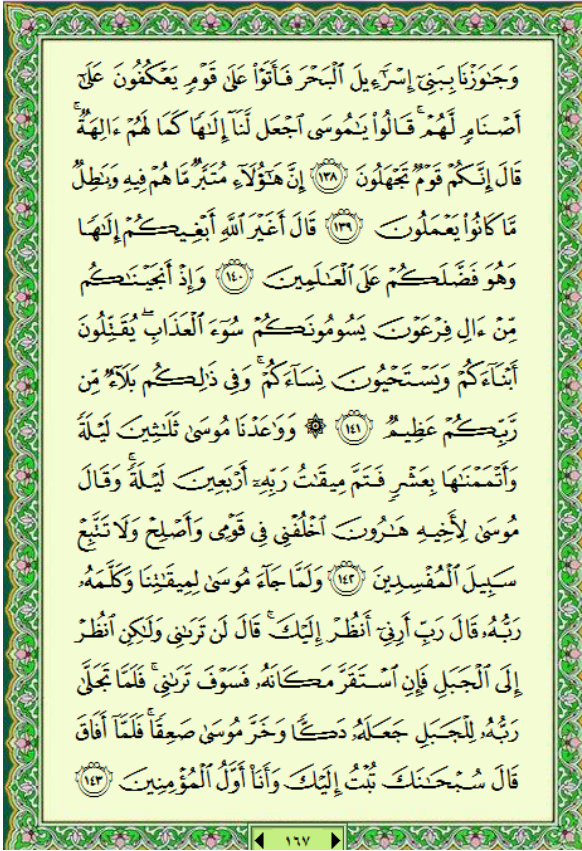 وَجَٰوَزْنَا بِبَنِىٓ إِسْرَٰٓءِيلَ ٱلْبَحْرَ فَأَتَوْا۟ عَلَىٰ قَوْمٍ يَعْكُفُونَ عَلَىٰٓ
أَصْنَامٍ لَّهُمْ ۚ قَالُوا۟ يَٰمُوسَى ٱجْعَل لَّنَآ إِلَٰهًا كَمَا لَهُمْ ءَالِهَةٌ ۚ
قَالَ إِنَّكُمْ قَوْمٌ تَجْهَلُونَ ١٣٨ إِنَّ هَٰٓؤُلَآءِ مُتَبَّرٌ مَّا هُمْ فِيهِ وَبَٰطِلٌ
مَّا كَانُوا۟ يَعْمَلُونَ ١٣٩ قَالَ أَغَيْرَ ٱللَّهِ أَبْغِيكُمْ إِلَٰهًا
وَهُوَ فَضَّلَكُمْ عَلَى ٱلْعَٰلَمِينَ ١٤٠ وَإِذْ أَنجَيْنَٰكُم
مِّنْ ءَالِ فِرْعَوْنَ يَسُومُونَكُمْ سُوٓءَ ٱلْعَذَابِ ۖ يُقَتِّلُونَ
أَبْنَآءَكُمْ وَيَسْتَحْيُونَ نِسَآءَكُمْ ۚ وَفِى ذَٰلِكُم بَلَآءٌ مِّن
رَّبِّكُمْ عَظِيمٌ ١٤١ ۞ وَوَٰعَدْنَا مُوسَىٰ ثَلَٰثِينَ لَيْلَةً
وَأَتْمَمْنَٰهَا بِعَشْرٍ فَتَمَّ مِيقَٰتُ رَبِّهِۦٓ أَرْبَعِينَ لَيْلَةً ۚ وَقَالَ
مُوسَىٰ لِأَخِيهِ هَٰرُونَ ٱخْلُفْنِى فِى قَوْمِى وَأَصْلِحْ وَلَا تَتَّبِعْ
سَبِيلَ ٱلْمُفْسِدِينَ ١٤٢ وَلَمَّا جَآءَ مُوسَىٰ لِمِيقَٰتِنَا وَكَلَّمَهُۥ
رَبُّهُۥ قَالَ رَبِّ أَرِنِىٓ أَنظُرْ إِلَيْكَ ۚ قَالَ لَن تَرَىٰنِى وَلَٰكِنِ ٱنظُرْ
إِلَى ٱلْجَبَلِ فَإِنِ ٱسْتَقَرَّ مَكَانَهُۥ فَسَوْفَ تَرَىٰنِى ۚ فَلَمَّا تَجَلَّىٰ
رَبُّهُۥ لِلْجَبَلِ جَعَلَهُۥ دَكًّا وَخَرَّ مُوسَىٰ صَعِقًا ۚ فَلَمَّآ أَفَاقَ
قَالَ سُبْحَٰنَكَ تُبْتُ إِلَيْكَ وَأَنَا۠ أَوَّلُ ٱلْمُؤْمِنِينَ ١٤٣
١٦٧